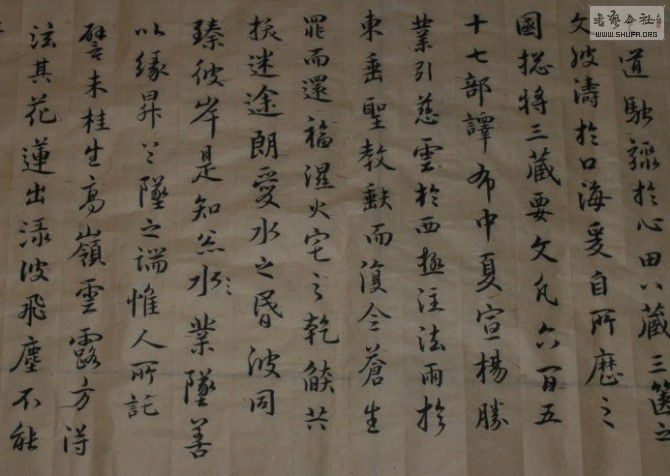 書藝公社
WWW.SHUPA.ORG
道馳驟於心田八藏三篋之
文波濤於口海爰自所歷之
國揔將三藏要文凡六百五
十七部譯布中夏宣楊勝
業引慈雲於西極注法雨於
東垂聖教缺而復全蒼生
罪而還福濕火宅之乾燄共
拔迷途朗愛水之昏波同
臻彼岸是知惡水業墜善
以緣昇〻墜之端惟人所託
譬未桂生高嶺雲露方得
泫其花蓮出淥波飛塵不能